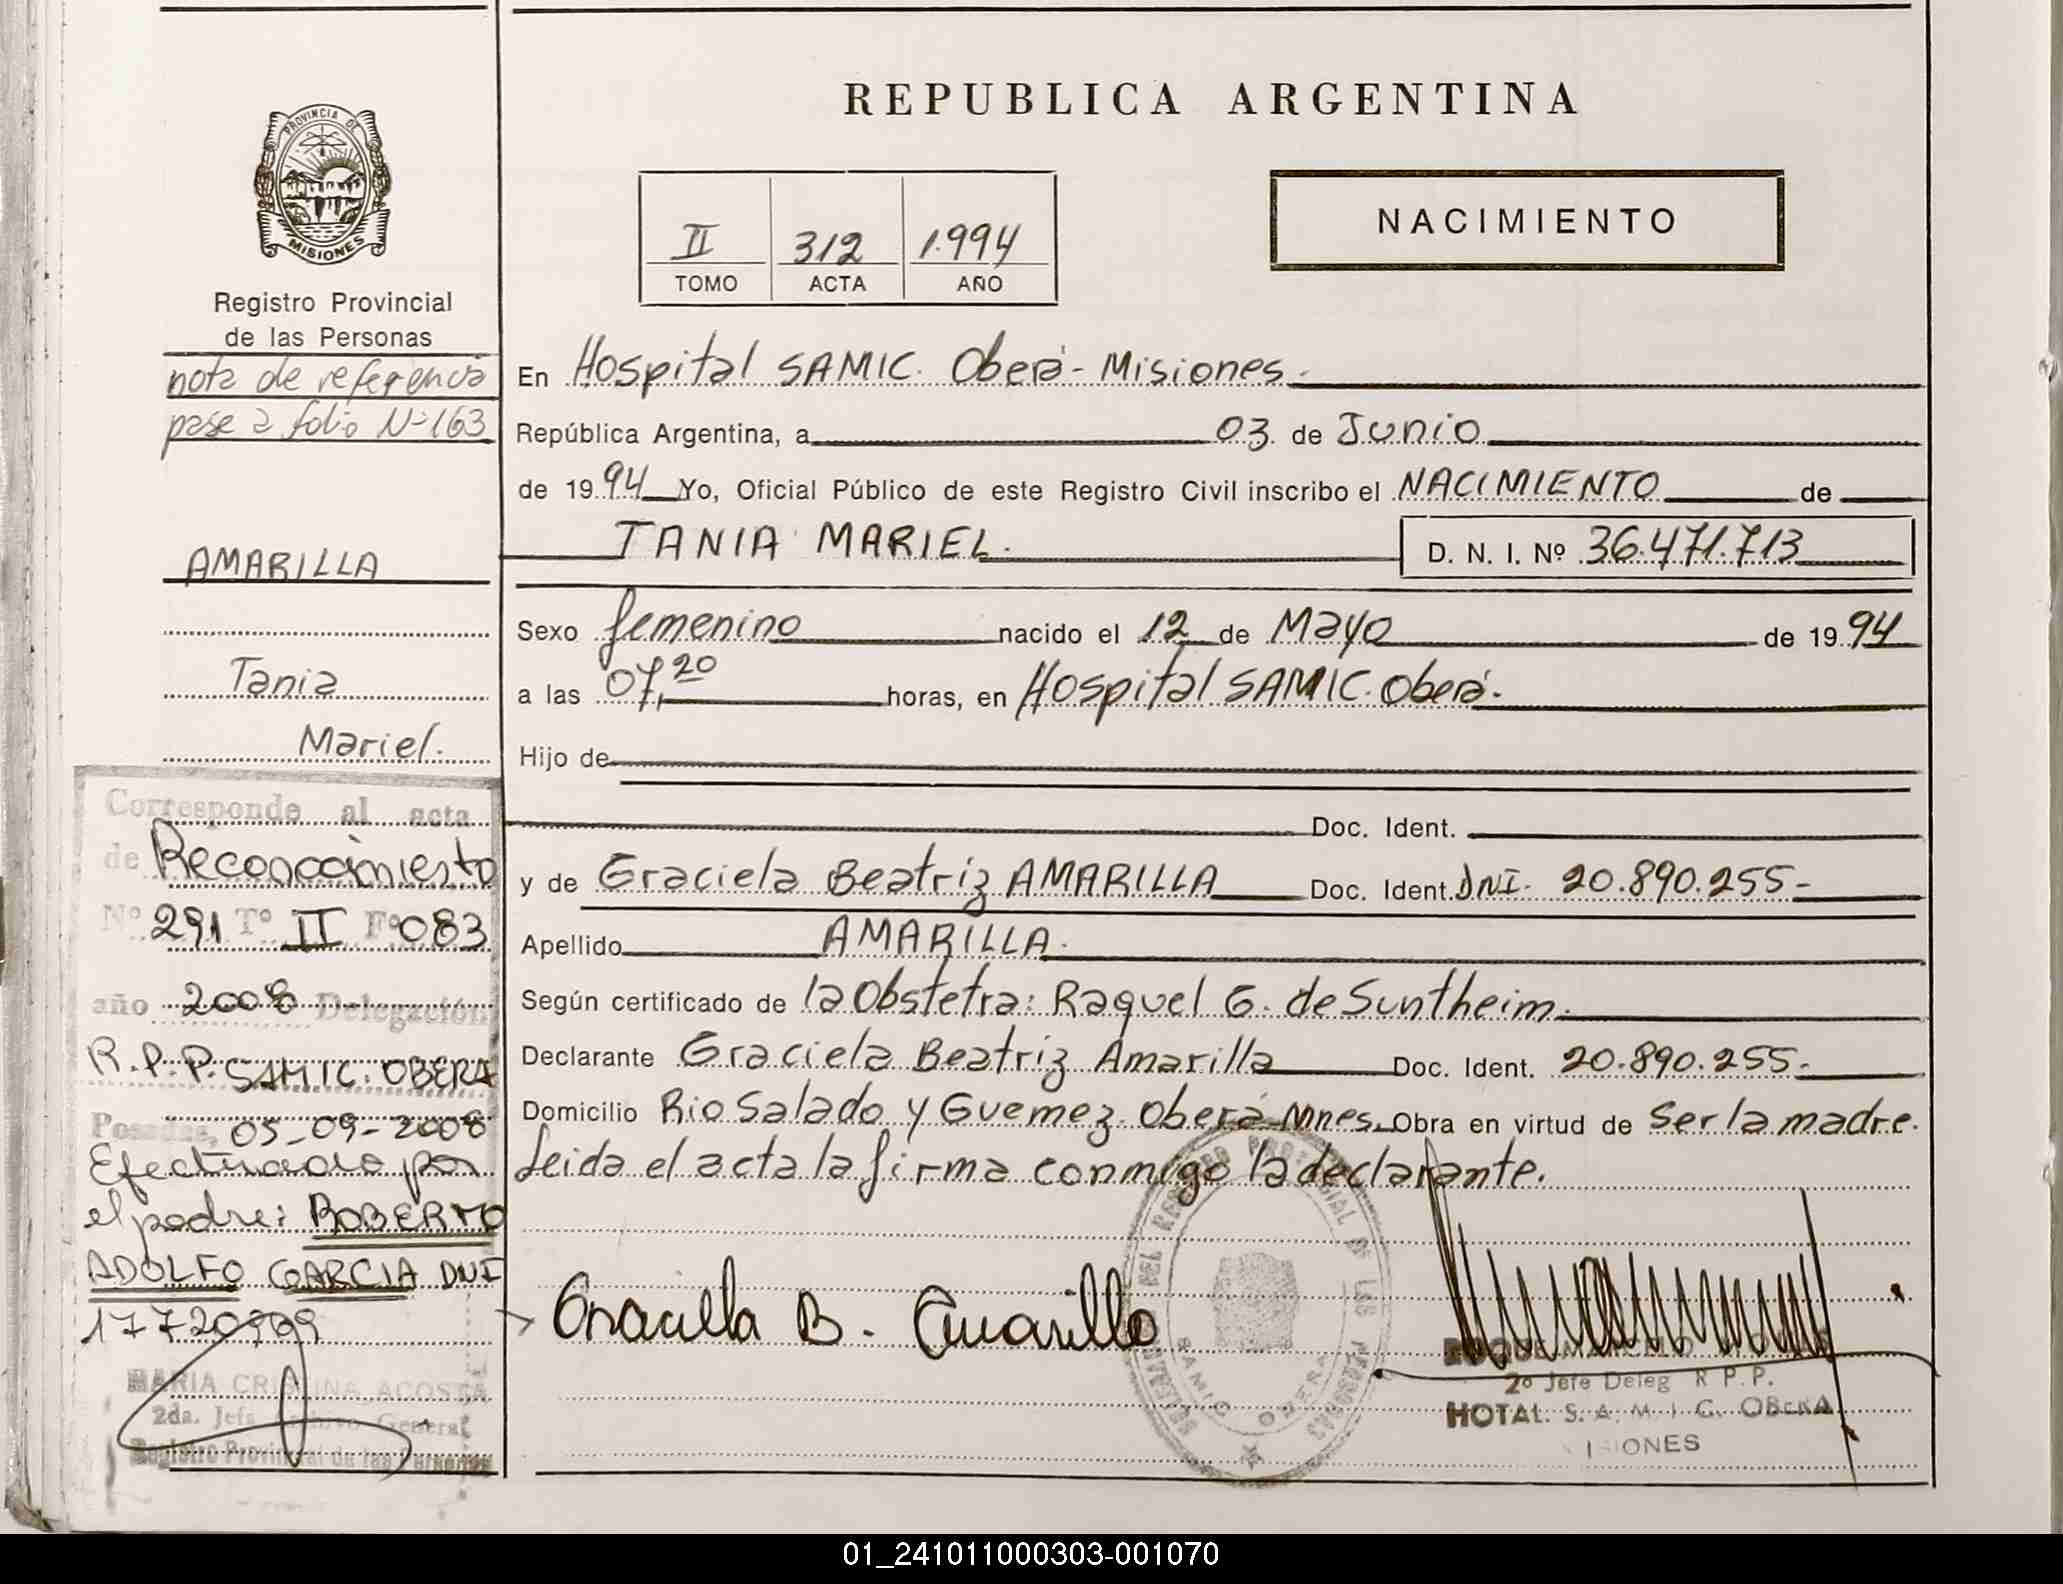 REPUBLICA ARGENTINA
PROVINCIA DE
MISIONES
Registro Provincial
de las Personas
nota de referencia
pase a folio Nº 163
II 312 1.994
TOMO ACTA AÑO
NACIMIENTO
En Hospital SAMIC. Oberá - Misiones.
República Argentina, a 03 de Junio
de 1994 Yo, Oficial Público de este Registro Civil inscribo el NACIMIENTO de
TANIA MARIEL. D. N. I. Nº 36.471.713
Sexo femenino nacido el 12 de Mayo de 1994
a las 07,20 horas, en Hospital SAMIC. Oberá.
Hijo de
Doc. Ident.
y de Graciela Beatriz AMARILLA Doc. Ident. DNI. 20.890.255-
Apellido AMARILLA.
Según certificado de la Obstetra: Raquel G. de Suntheim.
Declarante Graciela Beatriz Amarilla Doc. Ident. 20.890.255-
Domicilio Rio Salado y Guemez. Oberá-Mnes. Obra en virtud de Ser la madre.
Leida el acta la firma conmigo la declarante.
Graciela B. Amarilla
2º Jefe Deleg R P.P.
HOTAL. S. A. M. I. C. OBERA
AMARILLA
Tania
Mariel.
Corresponde al acta
de Reconocimiento
Nº 291 Tº II Fº 083
año 2008 Delegación
R.P.P. SAMIC. OBERA
Posadas, 05-09-2008
Efectuado por
el padre: ROBERTO
ADOLFO GARCIA DNI
MARIA CRISTINA ACOSTA
2da. Jefa Archivo General
Registro Provincial de las Personas
SAMIC OBERA
01_241011000303-001070